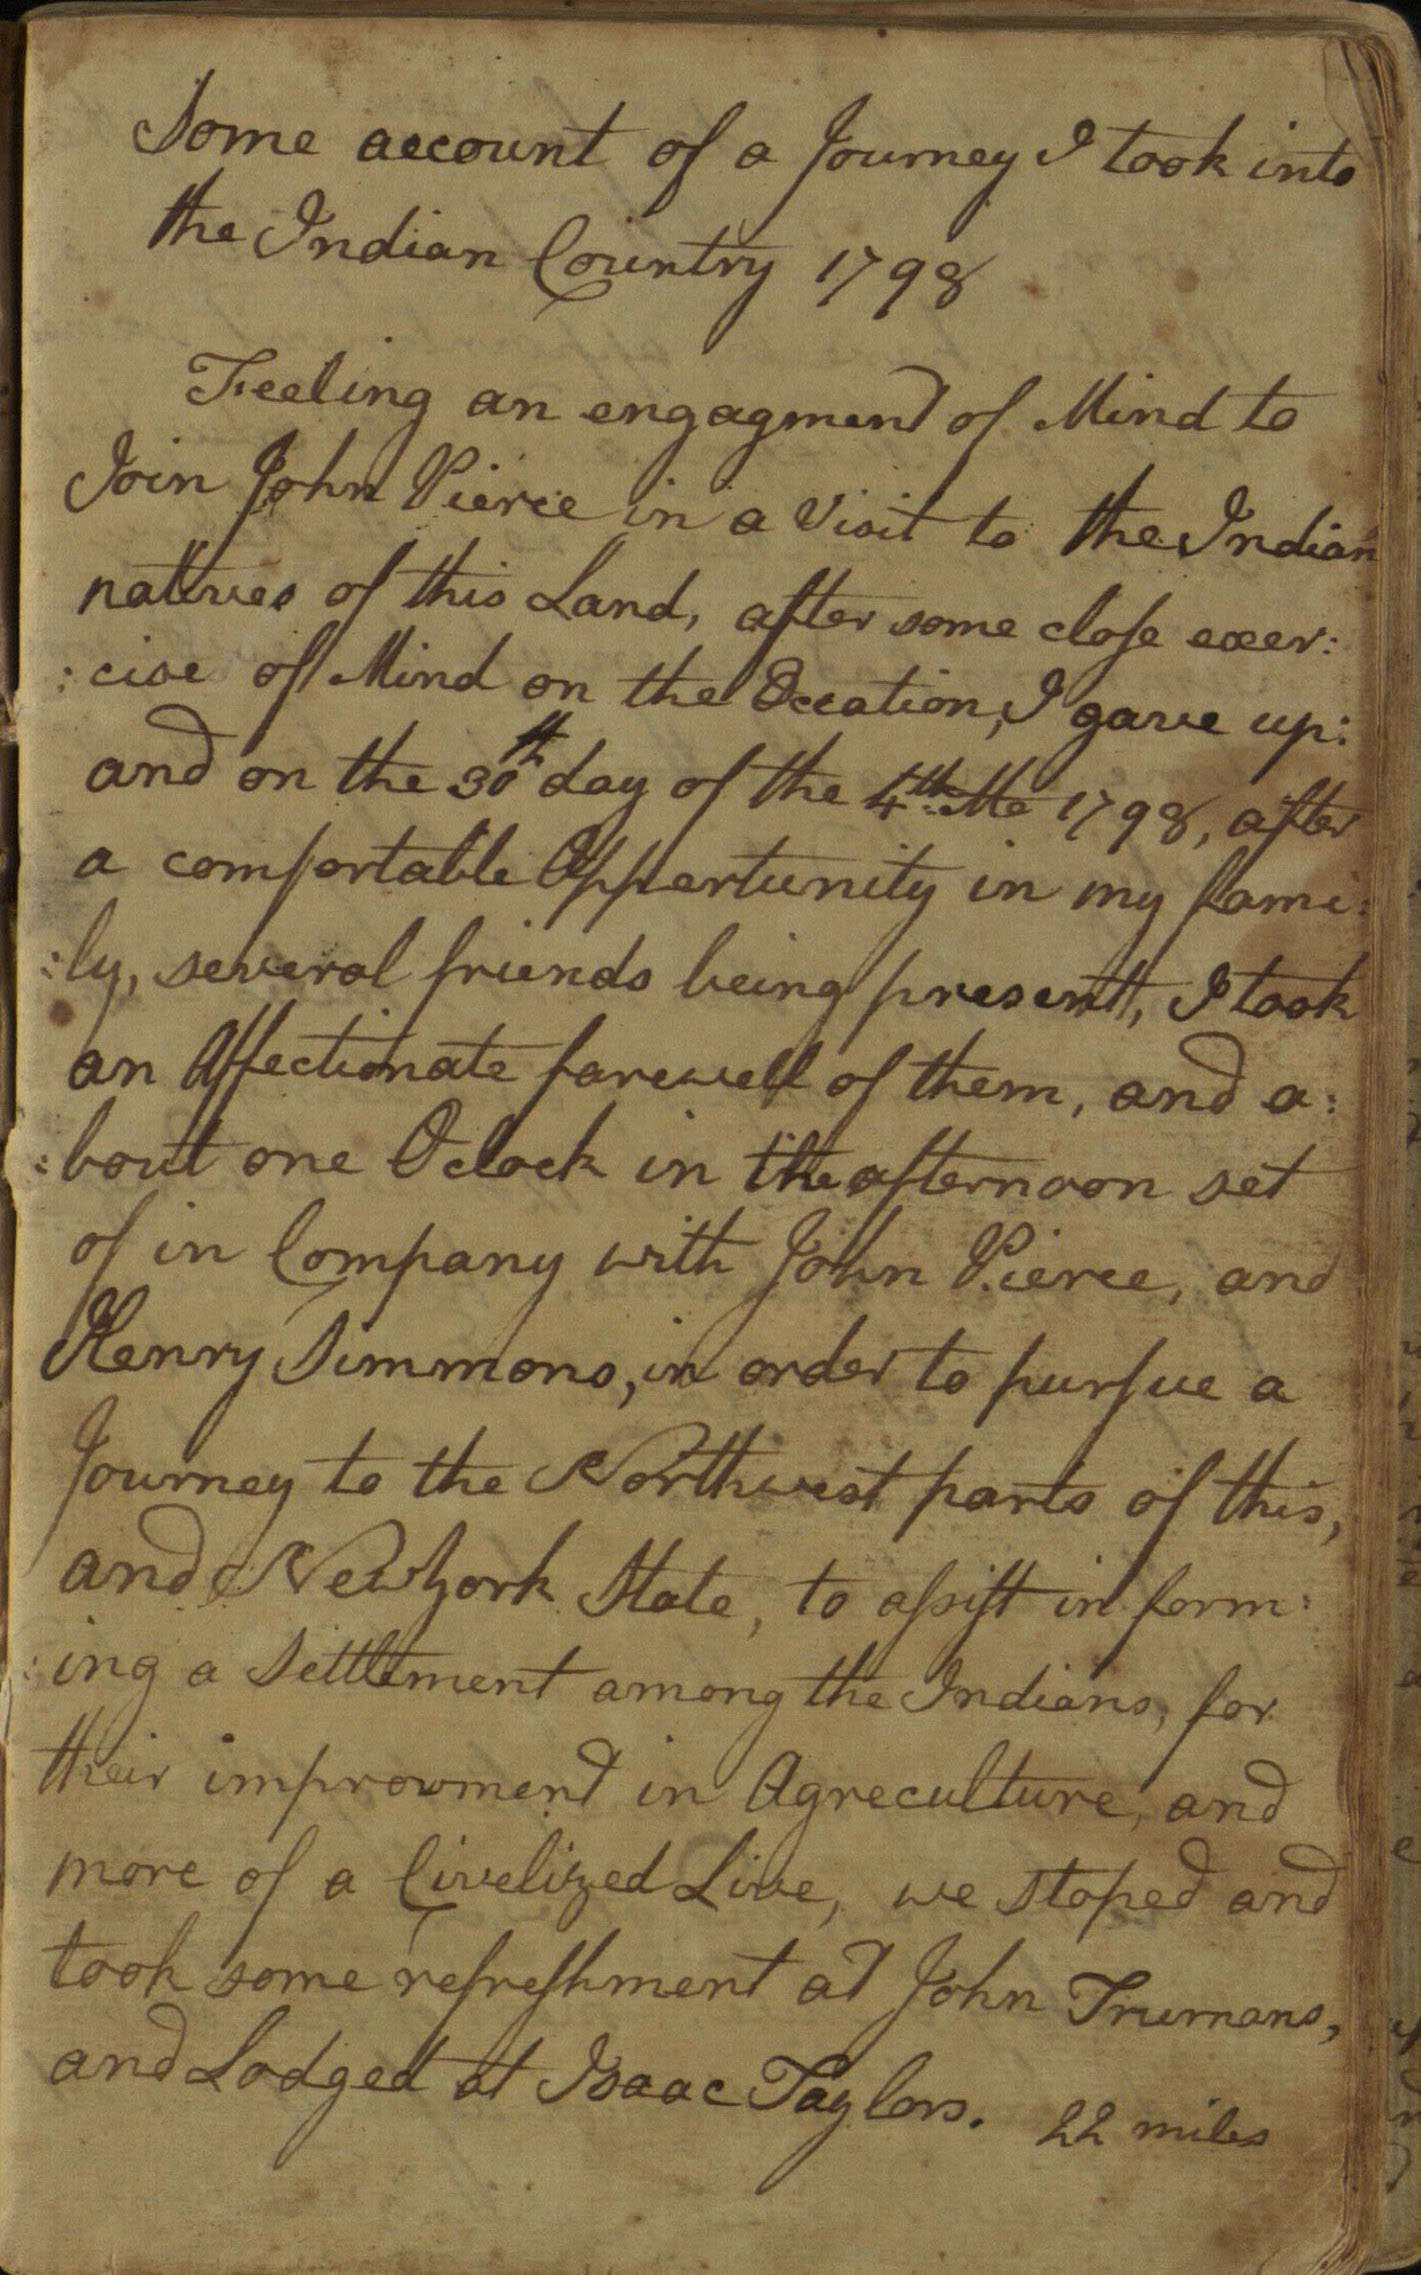 Some account of a Journey I took into
the Indian Country 1798
Feeling an engagment of Mind to
Join John Pierce in a Visit to the Indian
natives of this Land, after some close exer:
:cise of Mind on the Occation, I gave up:
and on the 30th day of the 4th Mo 1798, after
a comfortable Oppertunity in my fami:
:ly, several friends being present, I took
an Affectionate farewell of them, and a:
:bout one Oclock in the afternoon set
of in Company with John Pierce, and
Henry Simmons, in order to pursue a
Journey to the Northwest parts of this,
and New York State, to assist in form:
:ing a Settlement among the Indians, for
their improvment in Agreculture, and
more of a Civelized Live, we stoped and
took some refreshment at John Trumans,
and Lodged at Isaac Taylors. 22 miles